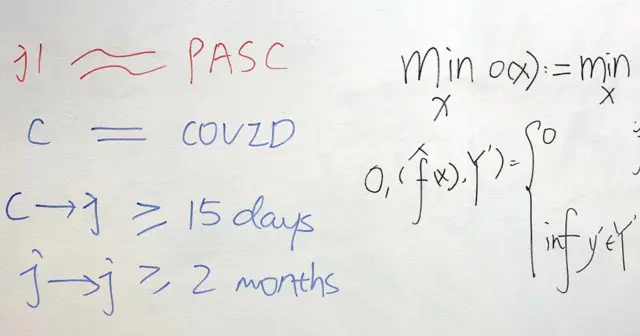 j1 ≈ PASC
C = COVID
C → j ≥ 15 days
j → j ≥ 2 months
min o(x) := min
x x
O, (f̂(x), Y') = { 0
inf y' ∈ Y'